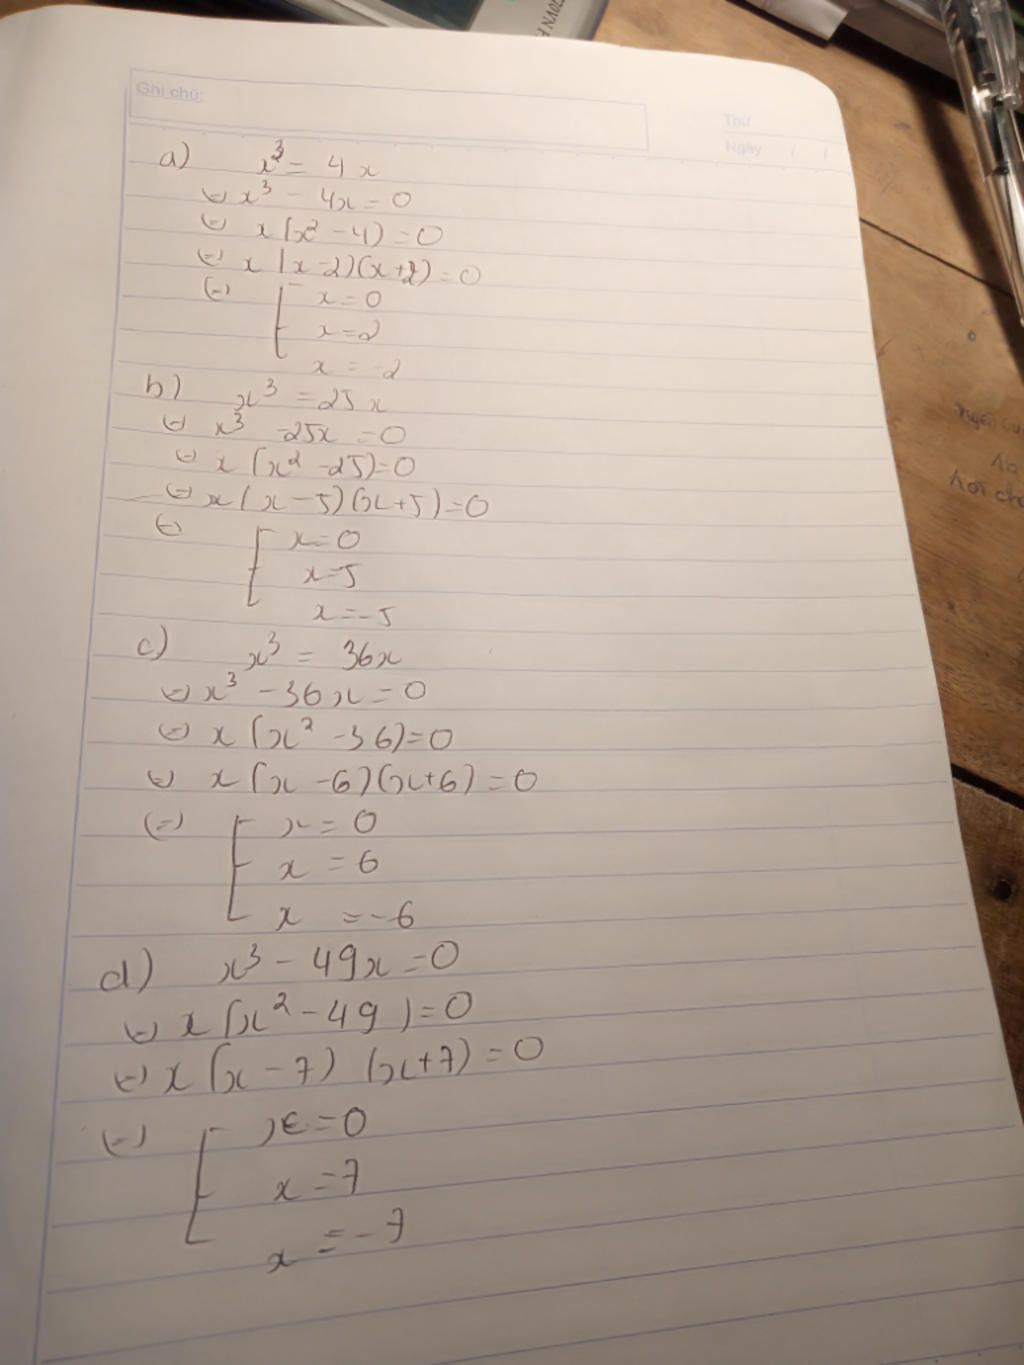 Ghi chú:
Thứ
Ngày / /
a) x³ = 4x
(=) x³ - 4x = 0
(=) x(x² - 4) = 0
(=) x(x-2)(x+2) = 0
(=) [ x = 0
x = 2
x = -2
b) x³ = 25x
(=) x³ - 25x = 0
(=) x(x² - 25) = 0
(=) x(x - 5)(x+5) = 0
(=) [ x = 0
x = 5
x = -5
c) x³ = 36x
(=) x³ - 36x = 0
(=) x(x² - 36) = 0
(=) x(x - 6)(x+6) = 0
(=) [ x = 0
x = 6
x = -6
d) x³ - 49x = 0
(=) x(x² - 49) = 0
(=) x(x - 7)(x+7) = 0
(=) [ x = 0
x = 7
x = -7